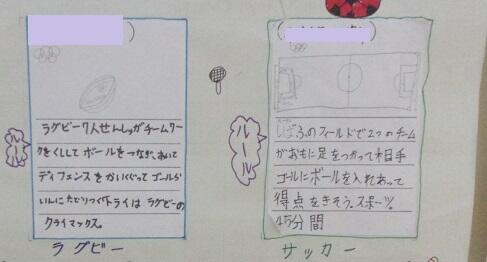 ルール
ラグビー7人せんしゅがチームワー
クをくししてボールをつなぎ、あいて
ディフェンスをかいくぐってゴールら
いんにたどりつくトライはラグビーの
クライマックス。
ラグビー
ルール
しばふのフィールドで2つのチーム
がおもに足をつかって相手
ゴールにボールを入れあって
得点をきそう、スポーツ。
45分間
サッカー